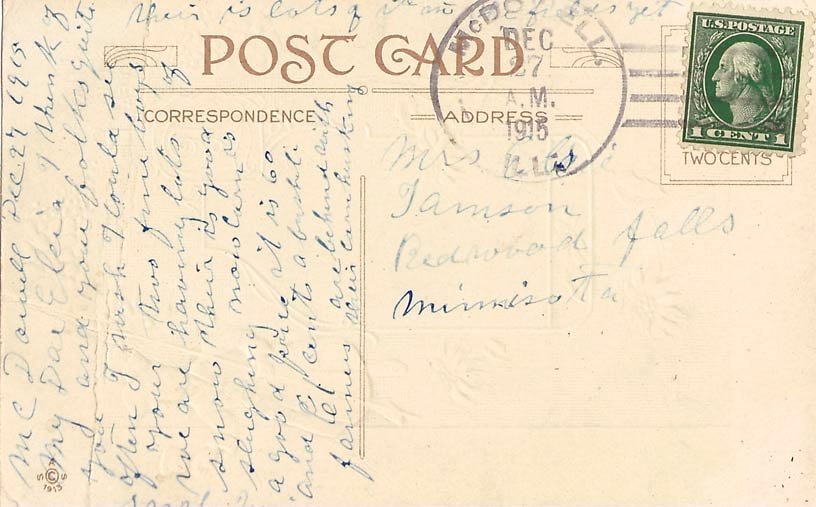 this is lots of
POST CARD
CORRESPONDENCE
ADDRESS
McDOWELL
DEC
27
A.M.
1915
ILL.
U.S. POSTAGE
1 CENT 1
TWO CENTS
Mrs
Tamson
Redwood falls
Minnisota
Mc Dowell Dec 27 1915
My Dear Elsie I think of
you and your folks quite
often I wish I could see
your two fine boys
we are having lots of
snow there is good
sleighing now corn is
a good price it is 60
and 61 cents a bushel
farmers are behind with
their cornhusking
S C S
1913